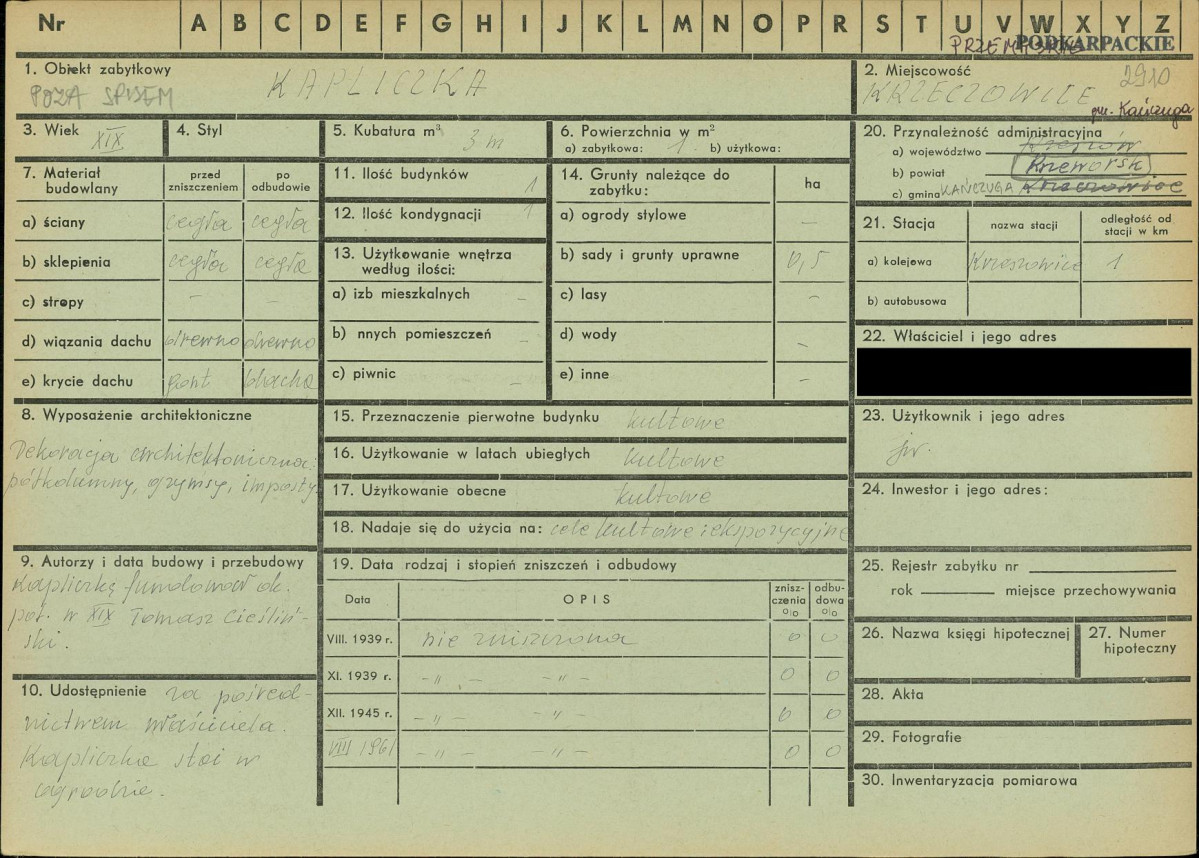 Nr A B C D E F G H I J K L M N O P R S T U V W X Y Z
PODKARPACKIE
1. Obiekt zabytkowy
POZA SPISEM
KAPLICZKA
2. Miejscowość
2910
KRZECZOWICE
gm. Kańczuga
3. Wiek
XIX
4. Styl
5. Kubatura m³
3 m
6. Powierzchnia w m²
a) zabytkowa: 1 b) użytkowa:
7. Materiał budowlany
przed zniszczeniem
po odbudowie
a) ściany cegła cegła
b) sklepienia cegła cegła
c) stropy – –
d) wiązania dachu drewno drewno
e) krycie dachu gont blacha
8. Wyposażenie architektoniczne
Dekoracja architektoniczna:
półkolumny, gzymsy, imposty
9. Autorzy i data budowy i przebudowy
Kapliczkę fundował ok.
poł. w XIX Tomasz Cieśliń-
ski.
10. Udostępnienie za pośred-
nictwem właściciela.
Kapliczka stoi w
ogrodzie.
11. Ilość budynków 1
12. Ilość kondygnacji 1
13. Użytkowanie wnętrza
według ilości:
a) izb mieszkalnych –
b) nnych pomieszczeń –
c) piwnic –
14. Grunty należące do
zabytku:
ha
a) ogrody stylowe –
b) sady i grunty uprawne 0,5
c) lasy –
d) wody –
e) inne –
15. Przeznaczenie pierwotne budynku kultowe
16. Użytkowanie w latach ubiegłych kultowe
17. Użytkowanie obecne kultowe
18. Nadaje się do użycia na: cele kultowe i ekspozycyjne
19. Data rodzaj i stopień zniszczeń i odbudowy
Data OPIS znisz-czenia o|o odbu-dowa o|o
VIII. 1939 r. nie zniszczona 0 0
XI. 1939 r. –„– –„– 0 0
XII. 1945 r. –„– –„– 0 0
VIII 1961 –„– –„– 0 0
20. Przynależność administracyjna
a) województwo
b) powiat Przeworsk
c) gmina KAŃCZUGA Krzeczowice
21. Stacja
nazwa stacji
odległość od
stacji w km
a) kolejowa Krzeczowice 1
b) autobusowa
22. Właściciel i jego adres
23. Użytkownik i jego adres
jw.
24. Inwestor i jego adres:
25. Rejestr zabytku nr
rok miejsce przechowywania
26. Nazwa księgi hipotecznej
27. Numer
hipoteczny
28. Akta
29. Fotografie
30. Inwentaryzacja pomiarowa